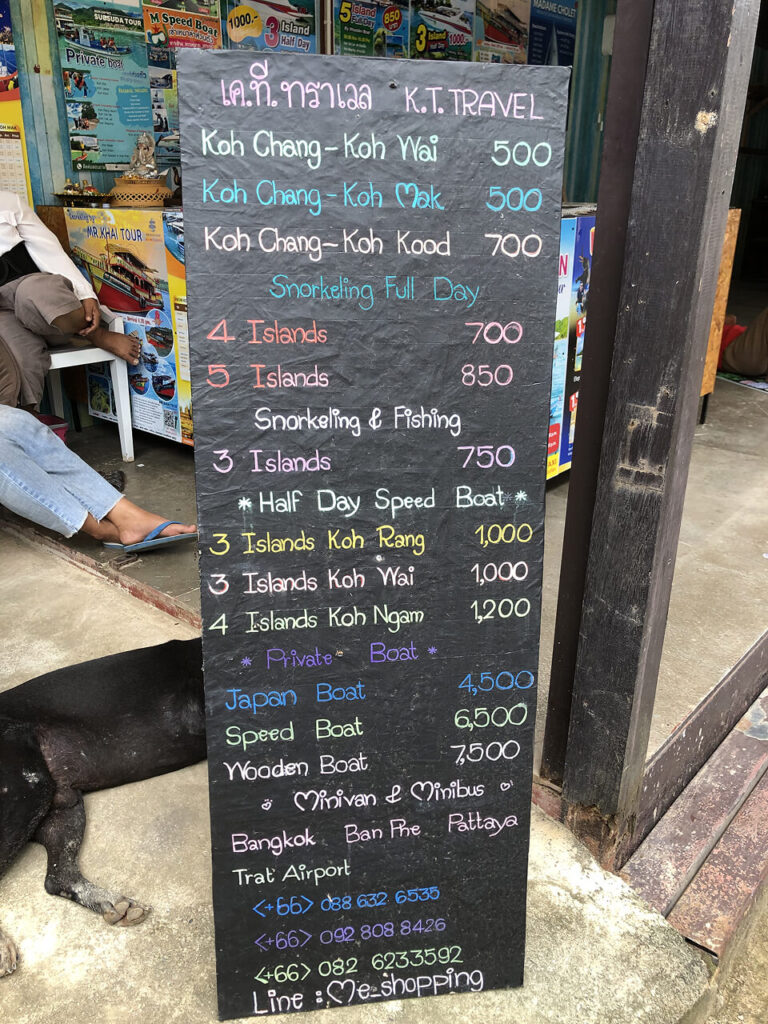 SUBSUDA TOUR
Private boat
M Speed Boat
1000.-
3 Island
Half Day
5 Island
850
3 Island
1000
MADAME CHOLET
MR.KHAI TOUR
เค.ที.ทราเวล K.T.TRAVEL
Koh Chang-Koh Wai 500
Koh Chang-Koh Mak 500
Koh Chang-Koh Kood 700
Snorkeling Full Day
4 Islands 700
5 Islands 850
Snorkeling & Fishing
3 Islands 750
*Half Day Speed Boat*
3 Islands Koh Rang 1,000
3 Islands Koh Wai 1,000
4 Islands Koh Ngam 1,200
* Private Boat *
Japan Boat 4,500
Speed Boat 6,500
Wooden Boat 7,500
Minivan & Minibus
Bangkok Ban Phe Pattaya
Trat Airport
<+66> 088 632 6535
<+66> 092 808 8426
<+66> 082 6233592
Line : Me_shopping